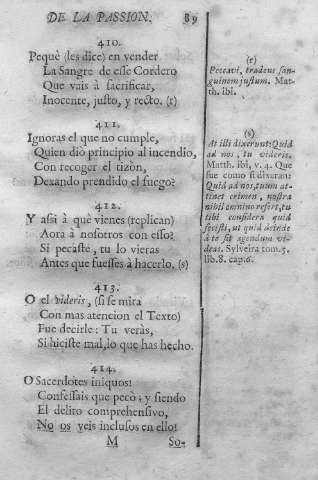 DE LA PASSION. 89
410.
Pequè (les dice) en vender
La Sangre de esse Cordero
Que vais à sacrificar,
Inocente, justo, y recto. (r)
411.
Ignoras el que no cumple,
Quien diò principio al incendio,
Con recoger el tizòn,
Dexando prendido el fuego?
412.
Y assi à què vienes (replican)
Aora à nosotros con esso?
Si pecaste, tu lo vieras
Antes que fuesses à hacerlo. (s)
413.
O el videris, (si se mira
Con mas atencion el Texto)
Fue decirle: Tu veràs,
Si hiciste mal, lo que has hecho.
414.
O Sacerdotes iniquos!
Confessais que pecò; y siendo
El delito comprehensivo,
No os veis inclusos en ello!
M So-
(r)
Peccavi, tradens san-
guinem justum. Mat-
th. ibl.
(s)
At illi dixerunt: Quid
ad nos, tu videris.
Matth. ibi, v. 4. Que
fue como si dixeran:
Quid ad nos, tuum at-
tinet crimen, nostra
nihil omnino refert, tu
tibi considera quid
fecisti, ut quid deinde
à te sit agendum vi-
deas. Sylveira tom. 5.
lib. 8. cap. 6.